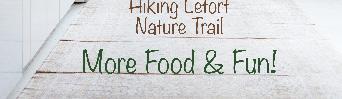 Hiking Letort
Nature Trail
More Food & Fun!